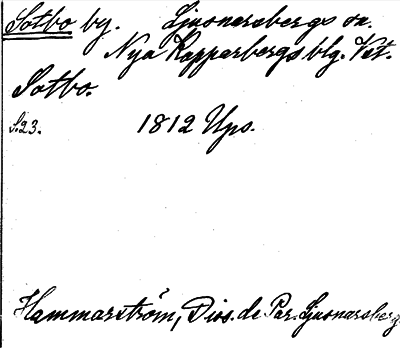 Sotbo by. Ljusnarsbergs sn.
Nya Kopparbergs blg. Vst.
Sotbo.
S.23. 1812 Ups.
Hammarström, Diss. de Par. Ljusnarsberg.